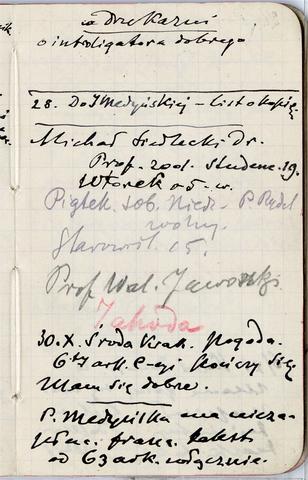 o Drukarni
o introligatora dobrego
28. Do Medyńskiej – list o kopię
Michał Siedlecki Dr.
Prof. zool. Studenc. 19.
Wtorek o 5 - w.
Piątek. Sob. Niedz. P. Rydel
wolny.
Starowiś. 15.
Prof. Wal. Jaworski
Jahoda
30. X. Środa Krak. Pogoda.
ark. kończy się
Mam się dobrze.
P. Medyńska ma
franc. tekst
od 63 ark. włącznie.